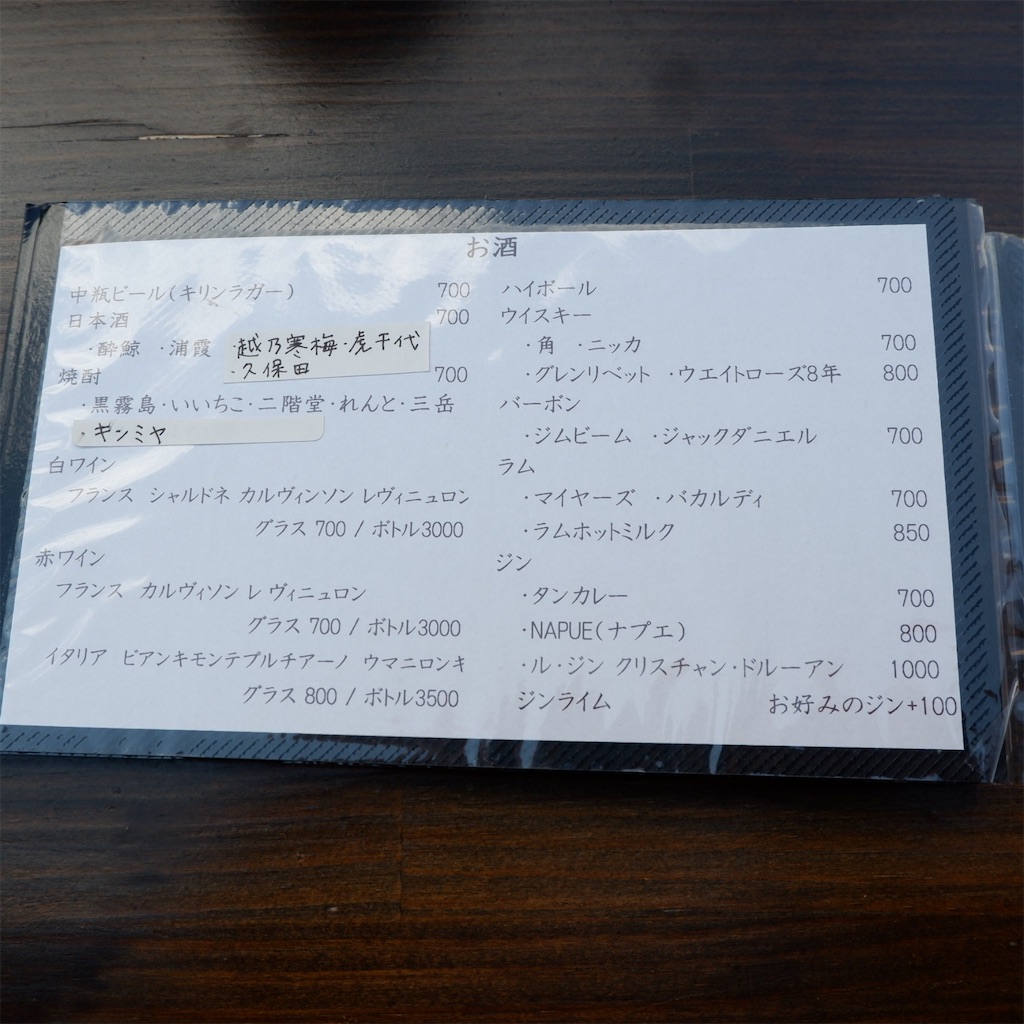 お酒
中瓶ビール(キリンラガー) 700
日本酒 700
・酔鯨 ・浦霞 ・越乃寒梅・虎千代
・久保田
焼酎 700
・黒霧島・いいちこ・二階堂・れんと・三岳
・キンミヤ
白ワイン
フランス シャルドネ カルヴィンソン レヴィニュロン
グラス 700 / ボトル3000
赤ワイン
フランス カルヴィソン レ ヴィニュロン
グラス 700 / ボトル3000
イタリア ビアンキモンテプルチアーノ ウマニロンキ
グラス 800 / ボトル3500
ハイボール 700
ウイスキー
・角 ・ニッカ 700
・グレンリベット ・ウエイトローズ8年 800
バーボン
・ジムビーム ・ジャックダニエル 700
ラム
・マイヤーズ ・バカルディ 700
・ラムホットミルク 850
ジン
・タンカレー 700
・NAPUE(ナプエ) 800
・ル・ジン クリスチャン・ドルーアン 1000
ジンライム お好みのジン+100